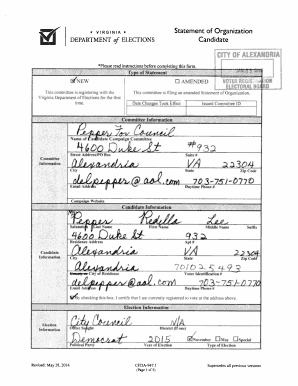 • VIRGINIA •
DEPARTMENT of ELECTIONS
Statement of Organization
Candidate
CITY OF ALEXANDRIA
VOTER REGISTRATION
ELECTORAL BOARD
*Please read instructions before completing this form.
Type of Statement
☑ NEW
☐ AMENDED
This committee is registering with the
Virginia Department of Elections for the first
time.
This committee is filing an amended Statement of Organization.
Date Changes Took Effect
Issued Committee ID
Committee Information
Pepper For Council
Name of Candidate Campaign Committee
4600 Duke St #932
Street Address/PO Box Suite #
Alexandria VA 22304
City State Zip Code
delpepper@aol.com 703-751-0770
Email Address Daytime Phone #
Campaign Website
Committee
Information
Candidate Information
Pepper Redella Lee
Salutation Last Name First Name Middle Name Suffix
4600 Duke St 932
Residence Address Apt #
Alexandria VA 22304
City State Zip Code
Alexandria 701025493
City of Residence Voter Identification #
delpepper@aol.com 703-751-0770
Email Address Daytime Phone #
By checking this box, I certify that I am currently registered to vote at the address above.
Candidate
Information
Election Information
City Council N/A
Office Sought District (if one)
Democrat 2015 November May Special
Political Party Year of Election Type of Election
Election
Information
Revised: May 28, 2014
CFDA-947.1
(Page 1 of 3)
Supersedes all previous versions